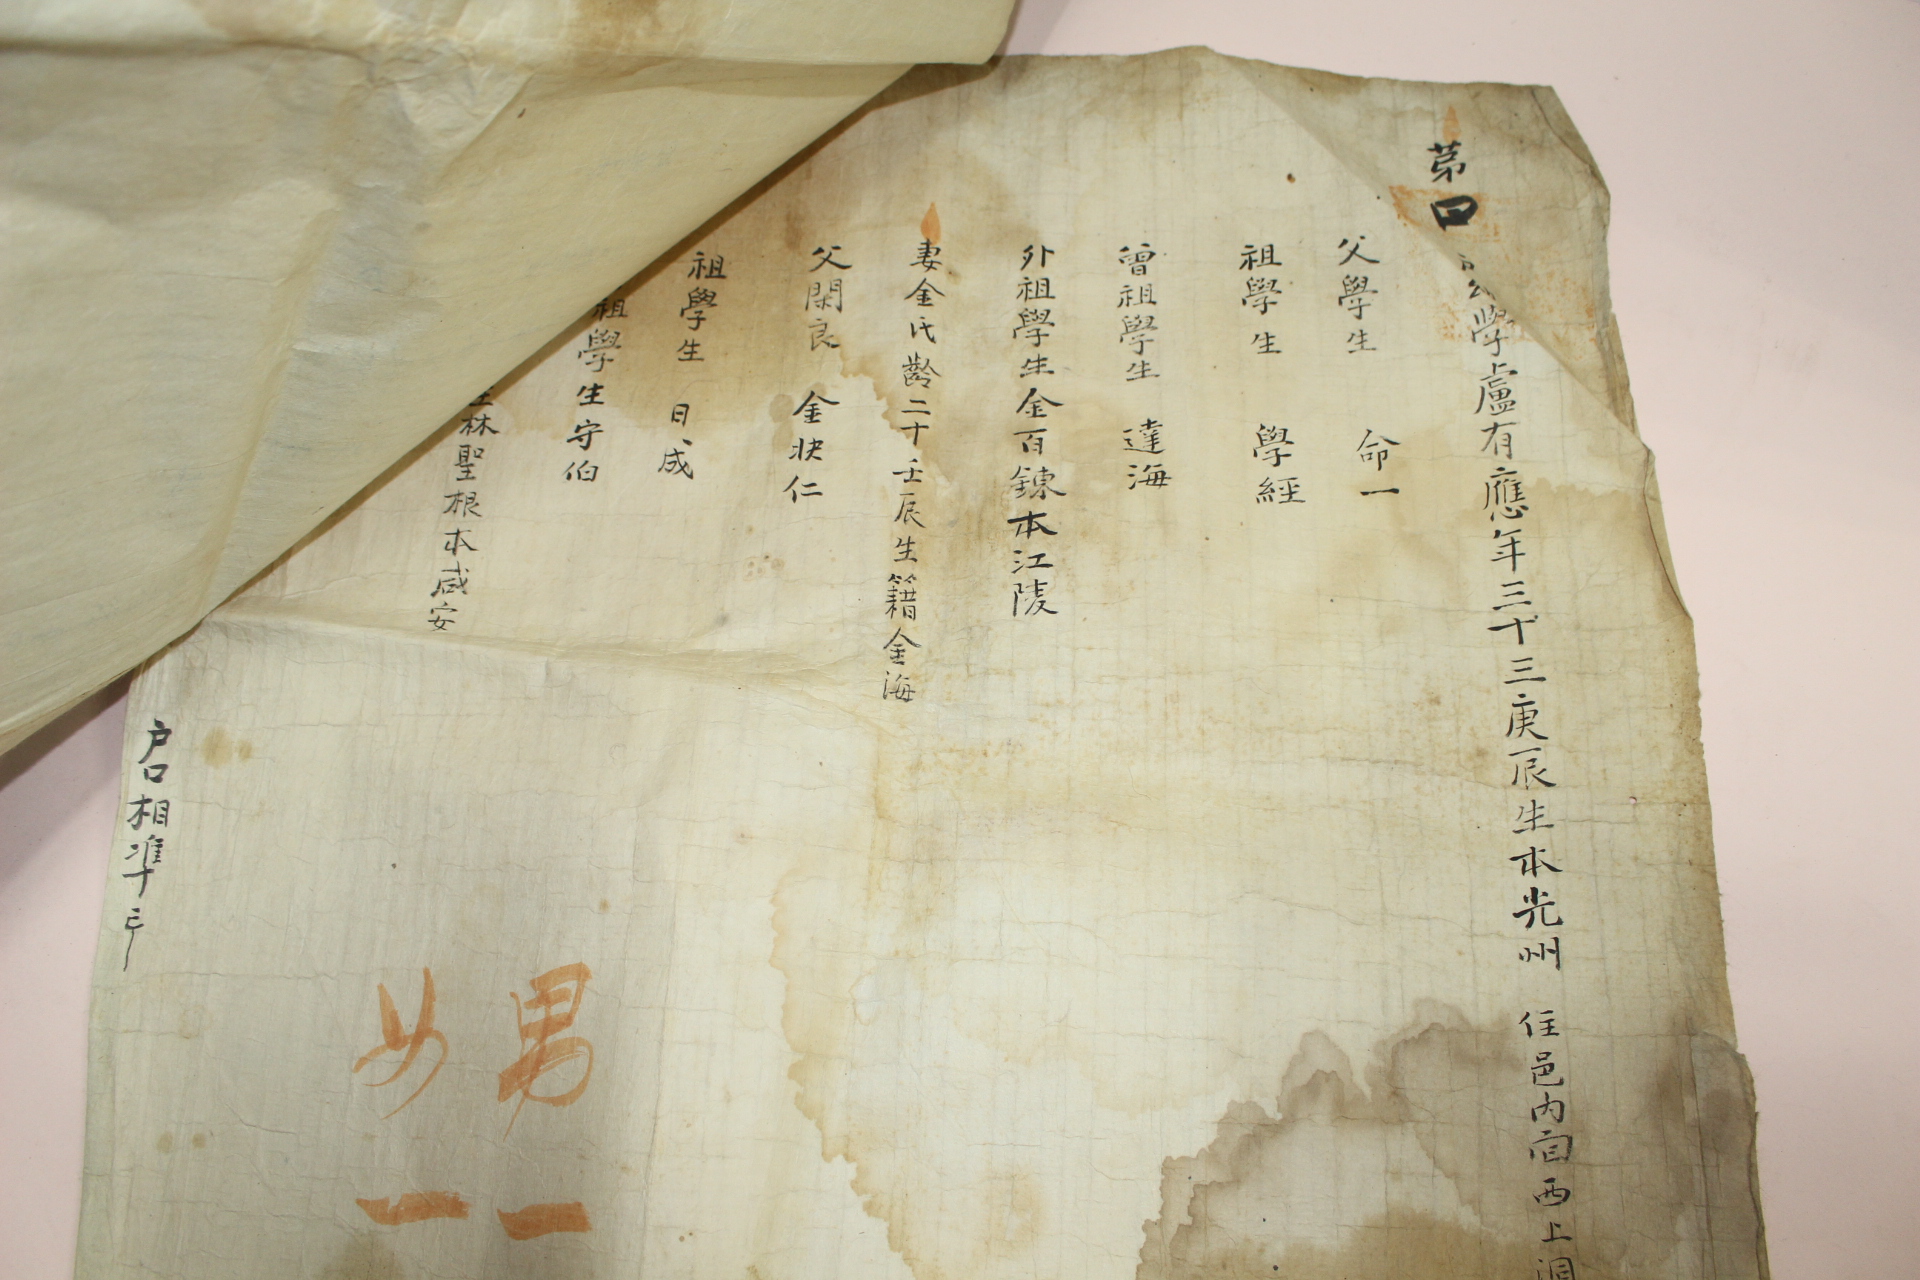 第四
學盧有應年三十三庚辰生本光州 住邑內面西上洞
父學生 命一
祖學生 學經
曾祖學生 達海
外祖學生金百鍊本江陵
妻金氏齡二十壬辰生籍金海
父閑良 金狀仁
祖學生 日成
祖學生守伯
林聖根本咸安
戶口相準印
男一
女一